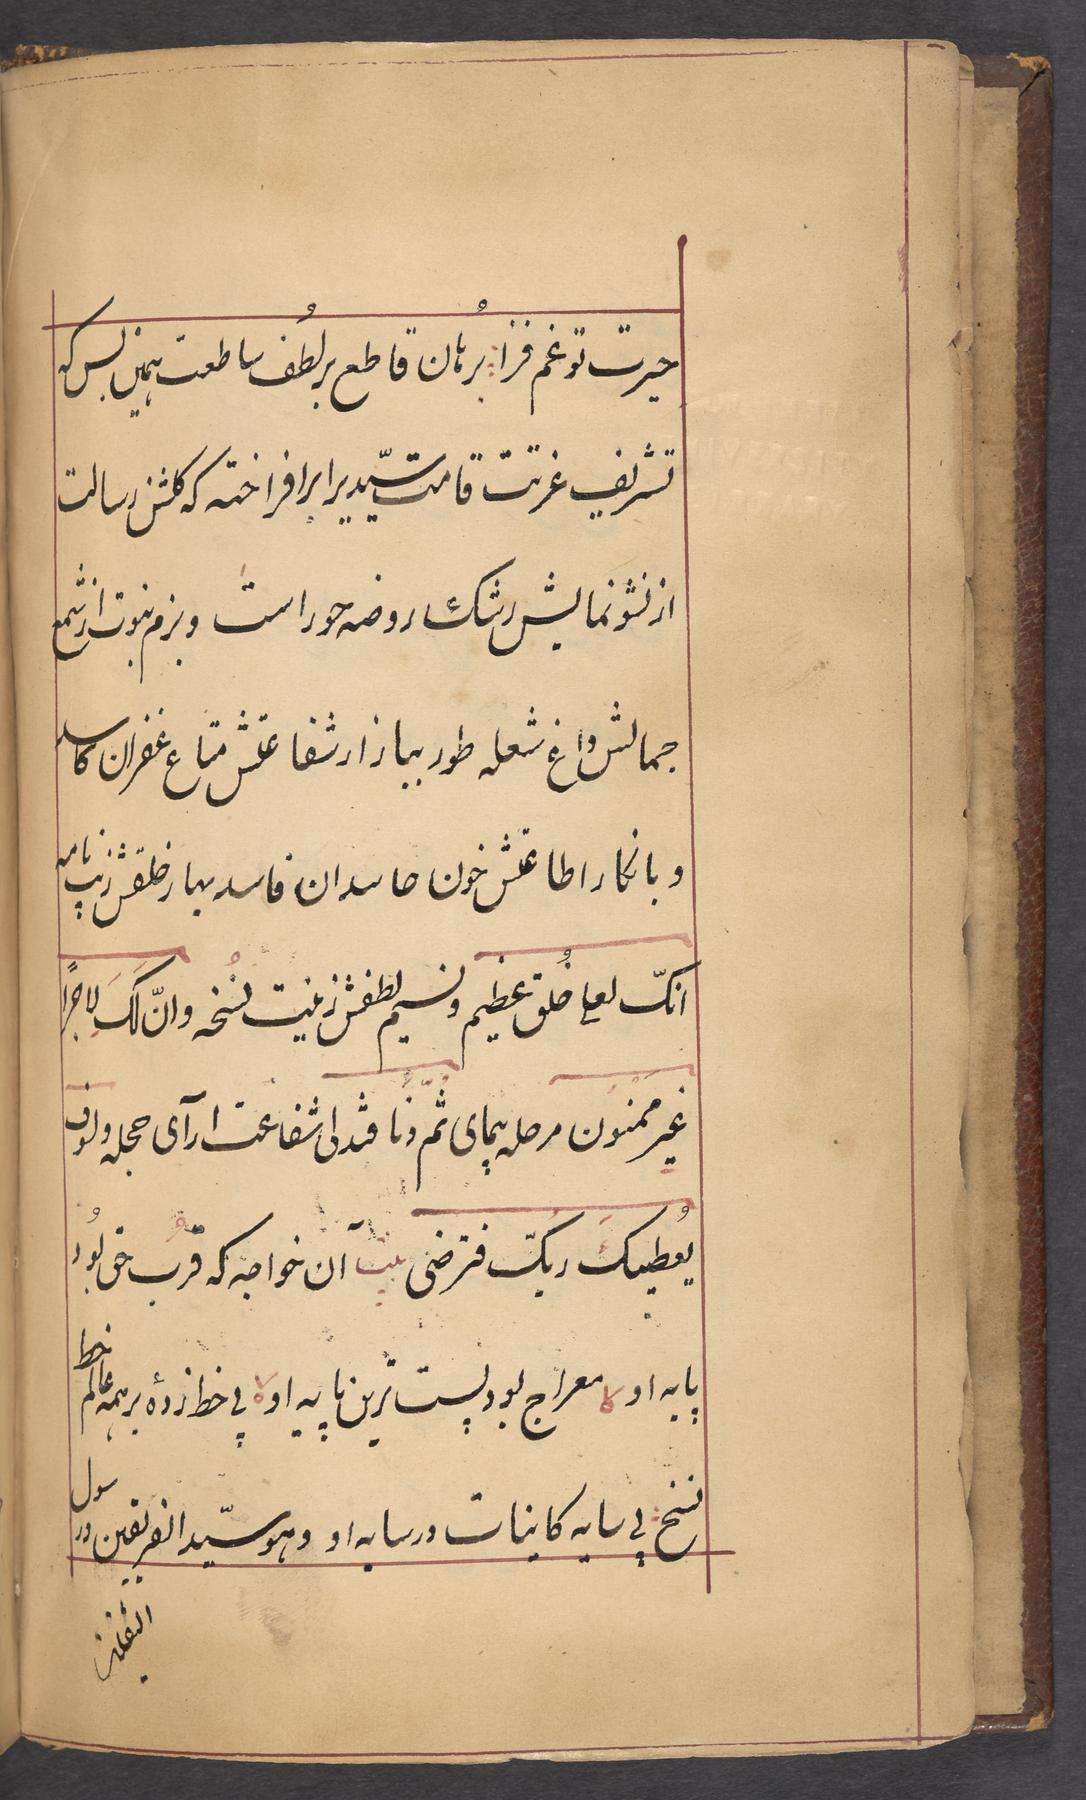 حیرت تو غم فزا برُهان قاطع بر لُطف ساطعت همین بس که
تشریف عزتت قامت سیّدیرا برافراخته که گلشن رسالت
از نشو نمایش رشک روضه حوراست و بزم نبوت از شمع
جمالش داغ شعله طور ببازار شفاعتش متاع غفران کاسد
و بانکار اطاعتش خون حاسدان فاسد بهار خلقش زیب نامه
انکّ لعلی خُلق عظیم و نسیم لطفش زینت نُسخه و انّ لَکَ لِاجرًا
غیر ممنُون مرحله پیمای ثُمّ دنا فتدلی شفاعت ارآی حجله ولسوف
یُعطیک ربکّ فترضی بیت آن خواجه که قُرب حق بُود
پایه او معراج بود پست ترین پایه او بی خط زده بر همه عالم خط
نسخ بی سایه کاینات در سایه او و هو سیّد الفریقین و رسول
الثقلین